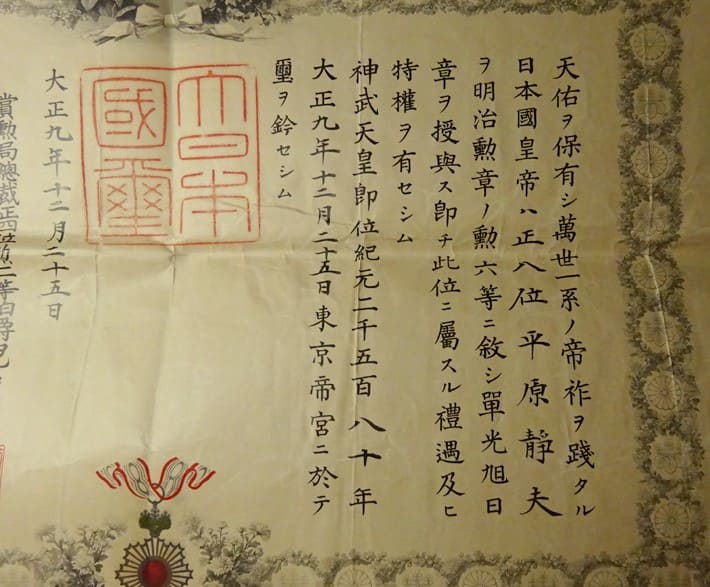 天佑ヲ保有シ萬世一系ノ帝祚ヲ踐タル
日本國皇帝ハ正八位平原靜夫
ヲ明治勲章ノ勲六等ニ敘シ單光旭日
章ヲ授與ス即チ此位ニ屬スル禮遇及ヒ
特權ヲ有セシム
神武天皇即位紀元二千五百八十年
大正九年十二月二十五日東京帝宮ニ於テ
璽ヲ鈐セシム
大日本
國璽
大正九年十二月二十五日
賞勲局總裁正四位勲二等伯爵兒